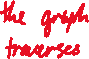 the graph
traverses